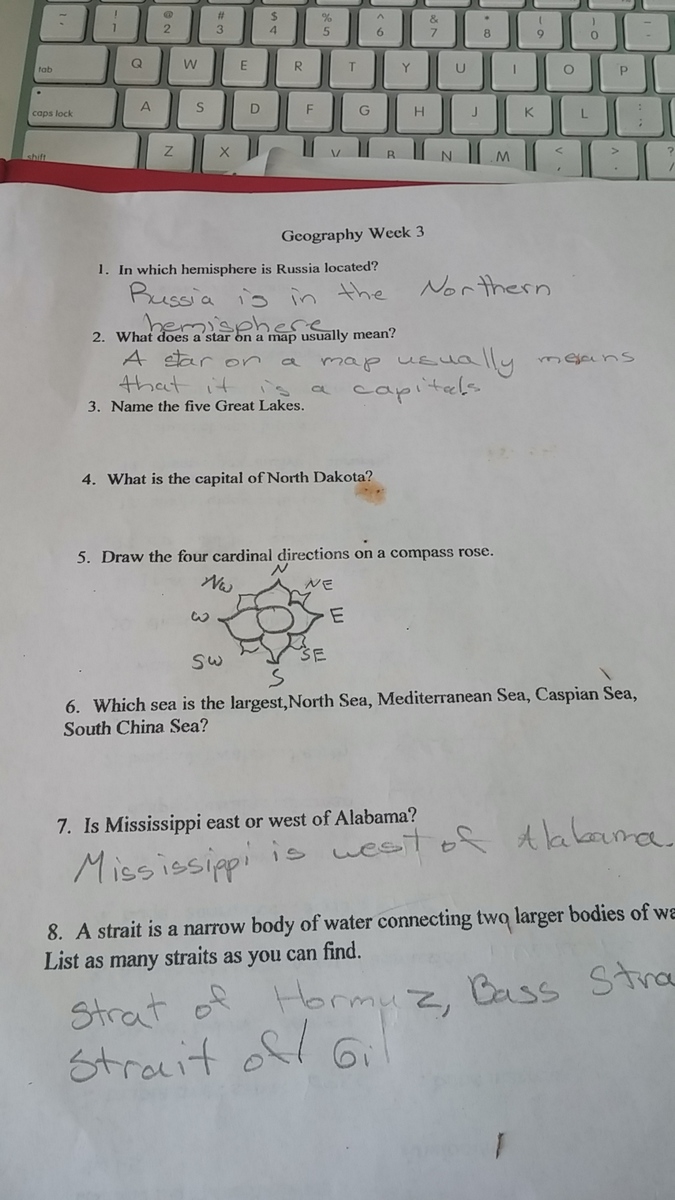 ~ ! @ # $ % ^ & * ( ) _
` 1 2 3 4 5 6 7 8 9 0 -
tab Q W E R T Y U I O P
caps lock A S D F G H J K L : ;
shift Z X V B N M < , > . ? /
Geography Week 3
1. In which hemisphere is Russia located?
Russia is in the Northern
hemisphere
2. What does a star on a map usually mean?
A star on a map usually means
that it is a capitals
3. Name the five Great Lakes.
4. What is the capital of North Dakota?
5. Draw the four cardinal directions on a compass rose.
N
NW NE
W E
SW SE
S
6. Which sea is the largest,North Sea, Mediterranean Sea, Caspian Sea,
South China Sea?
7. Is Mississippi east or west of Alabama?
Mississippi is west of Alabama.
8. A strait is a narrow body of water connecting two larger bodies of wa
List as many straits as you can find.
Strat of Hormuz, Bass Stra
Strait of Gil